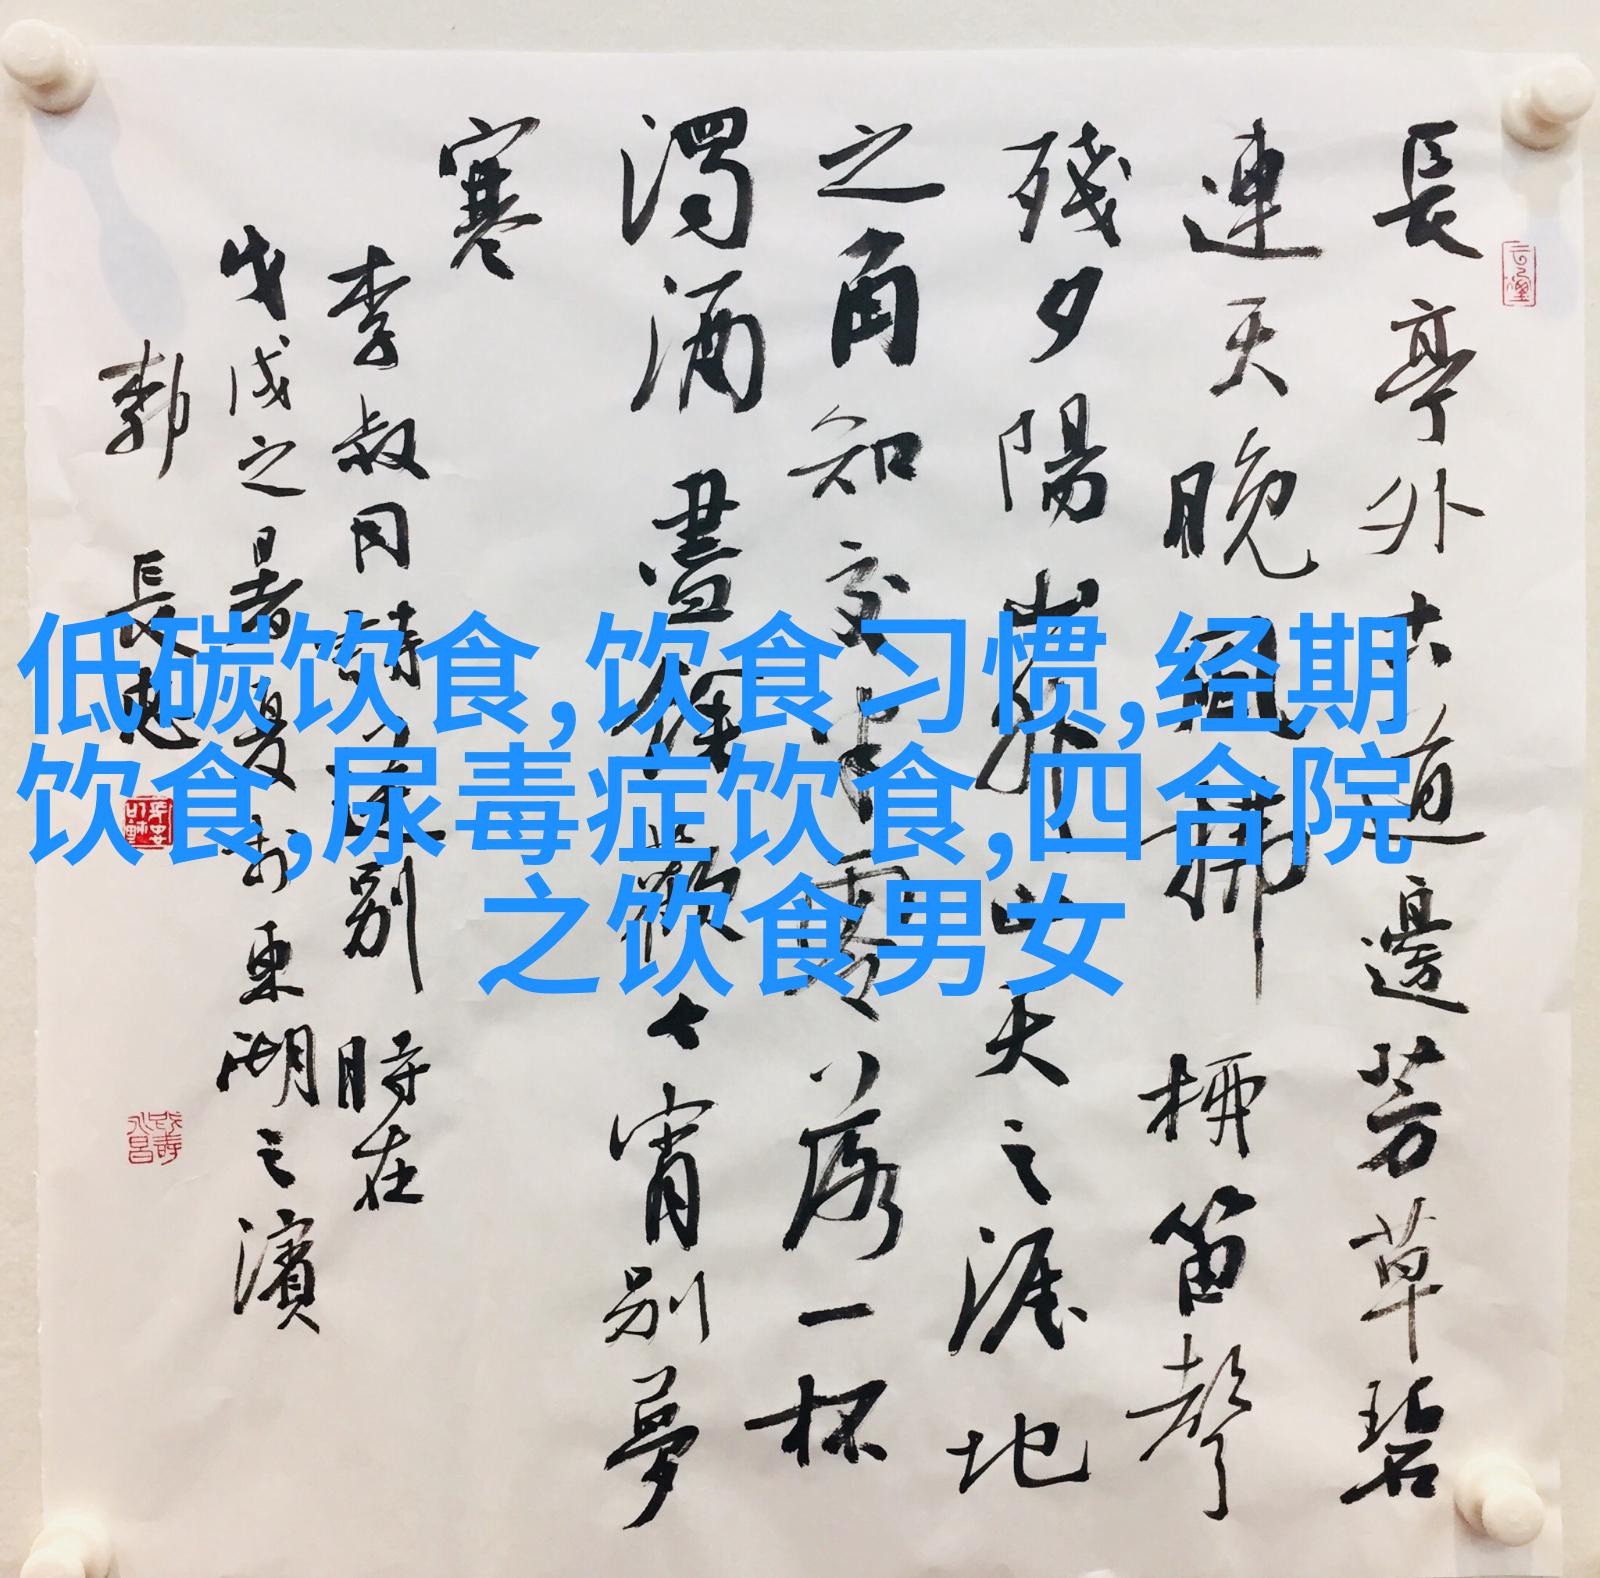 長亭外古道邊芳草碧
連天晚風拂柳笛聲
殘夕陽山外山天之涯地
之角知交半零落一杯
濁酒盡餘歡今宵別夢
寒
李叔同詩之送別 時在
戊戌之暑夏於東湖之濱
長忠
低碳饮食,饮食习惯,经期
饮食,尿毒症饮食,四合院
之饮食男女